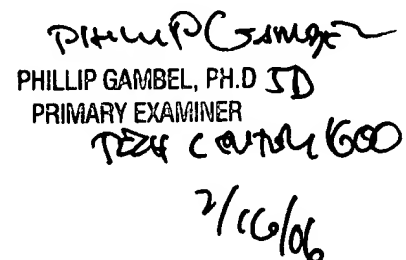 PHILLIP GAMBEL
PHILLIP GAMBEL, PH.D JD
PRIMARY EXAMINER
TECH CENTER 1600
2/16/06